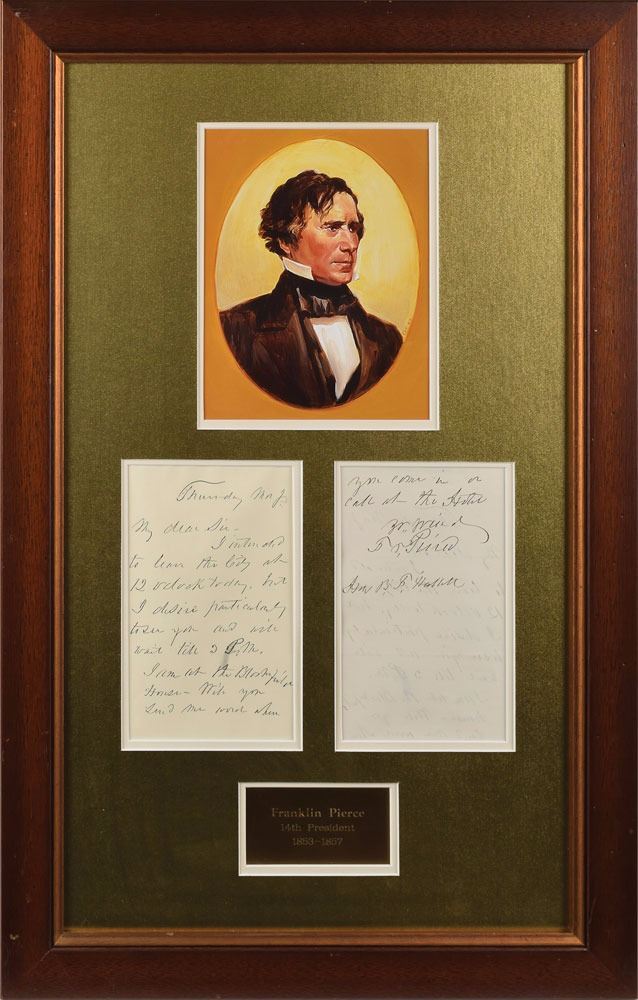 Thursday Mor'g.
My dear Sir-
I intended
to leave the City at
12 oclock today, but
I desire particularly
to see you and will
wait till 3 P.M.
I am at the
House - Will you
send me word when
you come in or
call at the Hotel
Yr. friend
Fr. Pierce
Hon B. F. Hallett
Franklin Pierce
14th President
1853-1857